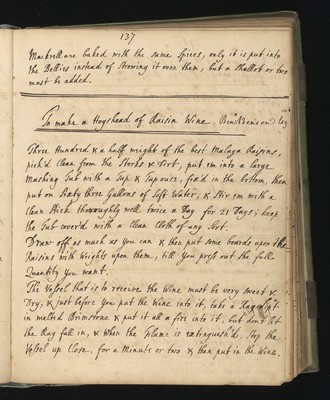 137
Mackrell are baked with the same Spices, only it is put into
the Bellies instead of Strowing it over them, but a Shallot or two
must be added.
To make a Hogshead of Raisin Wine. Ben: Benson Esq
Three Hundred & a half weight of the best Malaga Raisins,
pick'd clean from the Storks & Dirt, put em into a large
Mashing Tub with a Tap & Tapouse, fix'd in the bottom, then
put on Sixty three Gallons of Soft Water, & Stir em with a
Clean Stick thoroughly well twice a Day for 21 Days; keep
the Tub cover'd with a Clean Cloth of any Sort.
Draw off as much as You can & then put some boards upon the
Raisins with Weights upon them, till You press out the full
Quantity You want.
The Vessel that is to receive the Wine must be very sweet &
Dry, & just before You put the Wine into it, take a Rag dipt
in melted Brimstone & put it all a fire into it, but don't let
the Rag fall in, & when the Flame is extinguish'd, Stop the
Vessel up Close, for a Minute or two & then put in the Wine.